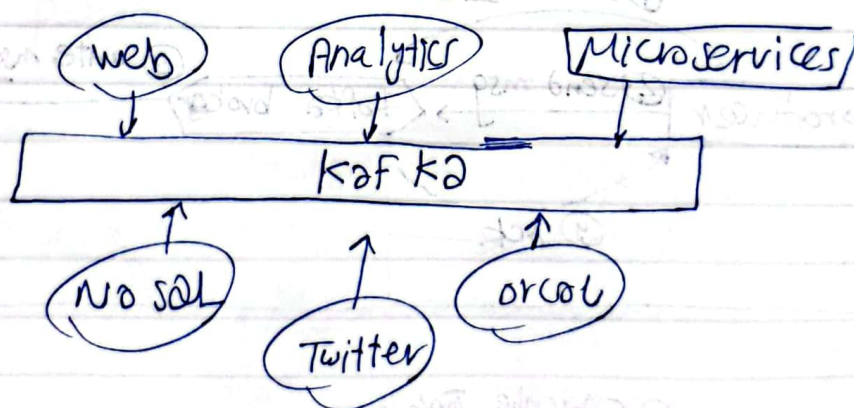 web
Analytics
Microservices
Kafka
No SQL
Twitter
orcal